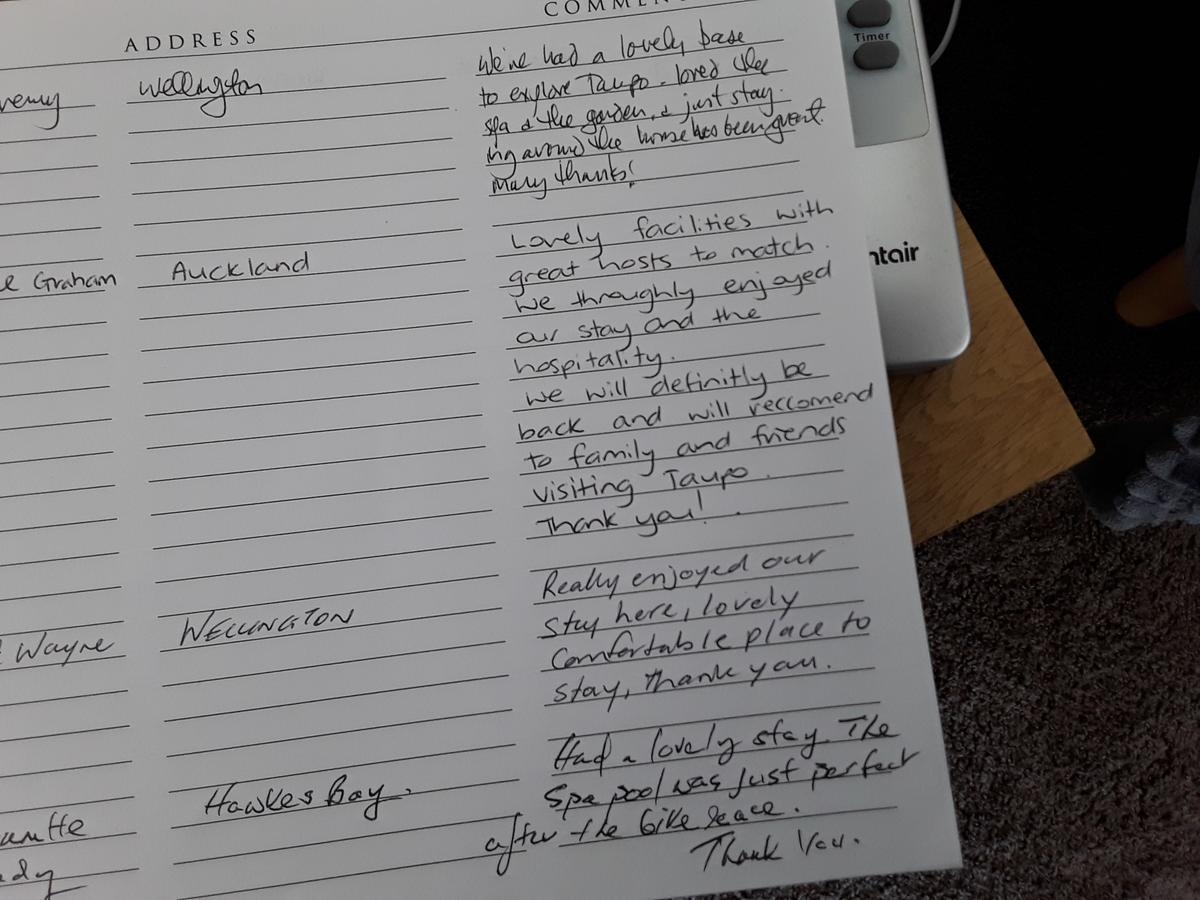 ADDRESS
COMMEN
Wellington
We've had a lovely base
to explore Taupo - loved the
spa & the garden, & just stay-
ing around the house has been great.
Many thanks!
Graham
Auckland
Lovely facilities with
great hosts to match.
We throughly enjoyed
our stay and the
hospitality.
we will definitly be
back and will reccomend
to family and friends
visiting Taupo.
Thank you!
Wayne
WELLINGTON
Really enjoyed our
stay here, lovely
comfortable place to
stay, thank you.
Hawkes Bay.
Had a lovely stay The
Spa pool was just perfect
after the bike race.
Thank You.
Timer
ntair